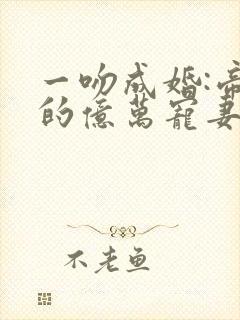 一吻成婚:帝
的億萬寵妻
不老鱼